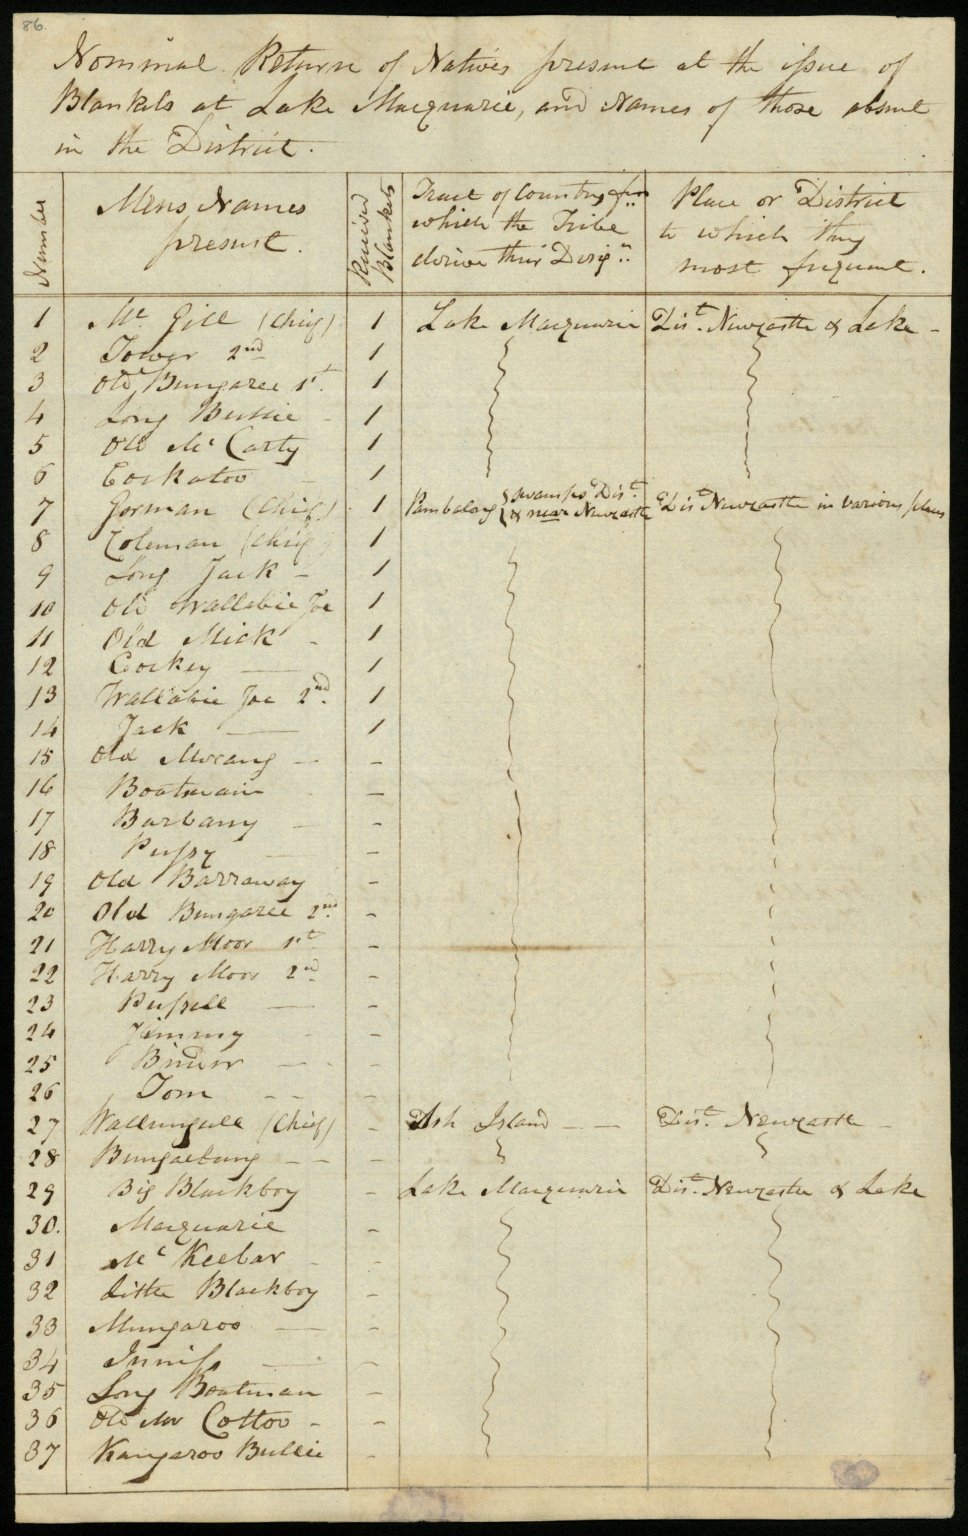 86.
Nominal Return of Natives present at the issue of
Blankets at Lake Macquarie, and Names of those absent
in the District.
Number
Mens Names
present.
Received
Blankets
Tract of Country from
which the Tribe
derive their Desig.n
Place or District
to which they
most frequent.
1 Mc Gill (Chief) 1 Lake Macquarie Dist. Newcastle & Lake -
2 Tower 2nd 1
3 Old Bungaree 1st. 1
4 Long Bullie - 1
5 Old Mc Carty 1
6 Cockatoo - 1
7 Gorman (Chief) 1 Pambalong { swamps Dist. & near Newcastle Dist Newcastle in various places
8 Coleman (Chief) 1
9 Long Jack - 1
10 Old Wallabie Joe 1
11 Old Mick - 1
12 Cockey — 1
13 Wallabie Joe 2nd. 1
14 Jack — 1
15 Old Morang - -
16 Boatswain -
17 Barbany - -
18 Pussy - -
19 Old Barraway -
20 Old Bungaree 2nd -
21 Harry Moor 1st -
22 Harry Moor 2nd -
23 Pussell — -
24 Jimmy - -
25 - -
26 Tom - - -
27 Wallungull (Chief) - Ash Island - — Dist. Newcastle -
28 Bungaebung - - -
29 Big Blackboy - Lake Macquarie Dist. Newcastle & Lake
30. Macquarie -
31 Mc Keebar - -
32 Little Blackboy -
33 Mungaroo — -
34 Inniss — -
35 Long Boatman -
36 Old Mr Cottoo - -
37 Kangaroo Bullie -